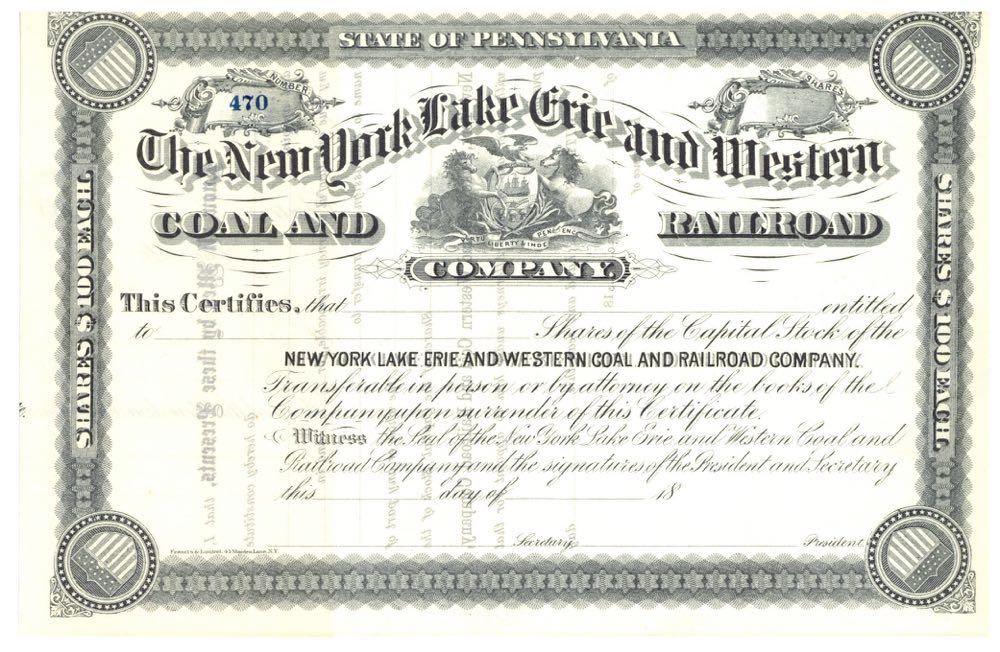 STATE OF PENNSYLVANIA
NUMBER
470
SHARES
The New York Lake Erie and Western
COAL AND RAILROAD
COMPANY.
SHARES $100 EACH.
SHARES $100 EACH.
This Certifies, that entitled
to Shares of the Capital Stock of the
NEW YORK LAKE ERIE AND WESTERN COAL AND RAILROAD COMPANY.
Transferable in person or by attorney on the books of the
Company upon surrender of this Certificate.
Witness the Seal of the New York Lake Erie and Western Coal and
Railroad Company and the signatures of the President and Secretary
this day of 18
Secretary President
Maiden Lane, N.Y.